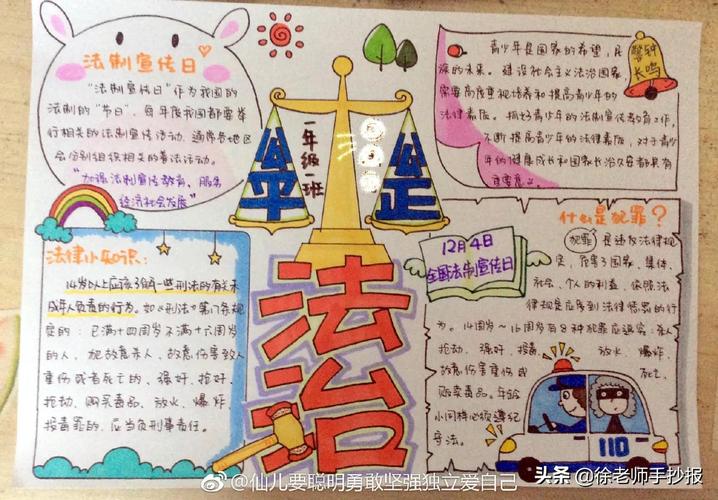 法制宣传日
"法制宣传日"作为我国的
法制的"节日",每年度我国都要举
行相关的法制宣传活动,通常各地区
会分别组织相关的普法活动。
"加强法制宣传教育、服务
经济社会发展"
一年级一班
公平
公正
法治
警钟
长鸣
青少年是国家的希望,民
族的未来。建设社会主义法治国家,
需要高度重视培养和提高青少年的
法律素质。抓好青少年的法制宣传教育工作,
不断提高青少年的法律素质,对于青少
年的健康成长和国家长治久安都具有
重要意义。
法律小知识:
14岁以上应该了解一些刑法的有关未
成年人负责的行为。如《刑法》第17条规
定的:已满十四周岁不满十六周岁
的人,犯故意杀人、故意伤害致人
重伤或者死亡的、强奸、抢奸、
抢动、购买毒品、放火、爆炸
投毒罪的,应当负刑事责任。
12月4日
全国法制宣传日
什么是犯罪?
犯罪是违反法律规
定,危害了国家、集体、
社会、个人的利益,依照法
律规定应受到法律惩罚的行
为。14周岁~16周岁有8种犯罪应追究:杀人
抢动、强奸、投毒、放火、爆炸、
故意伤害重伤或死亡、
贩卖毒品。年龄
小同样必须遵纪
守法。
110
@仙儿要聪明勇敢坚强独立爱自己
头条 @徐老师手抄报